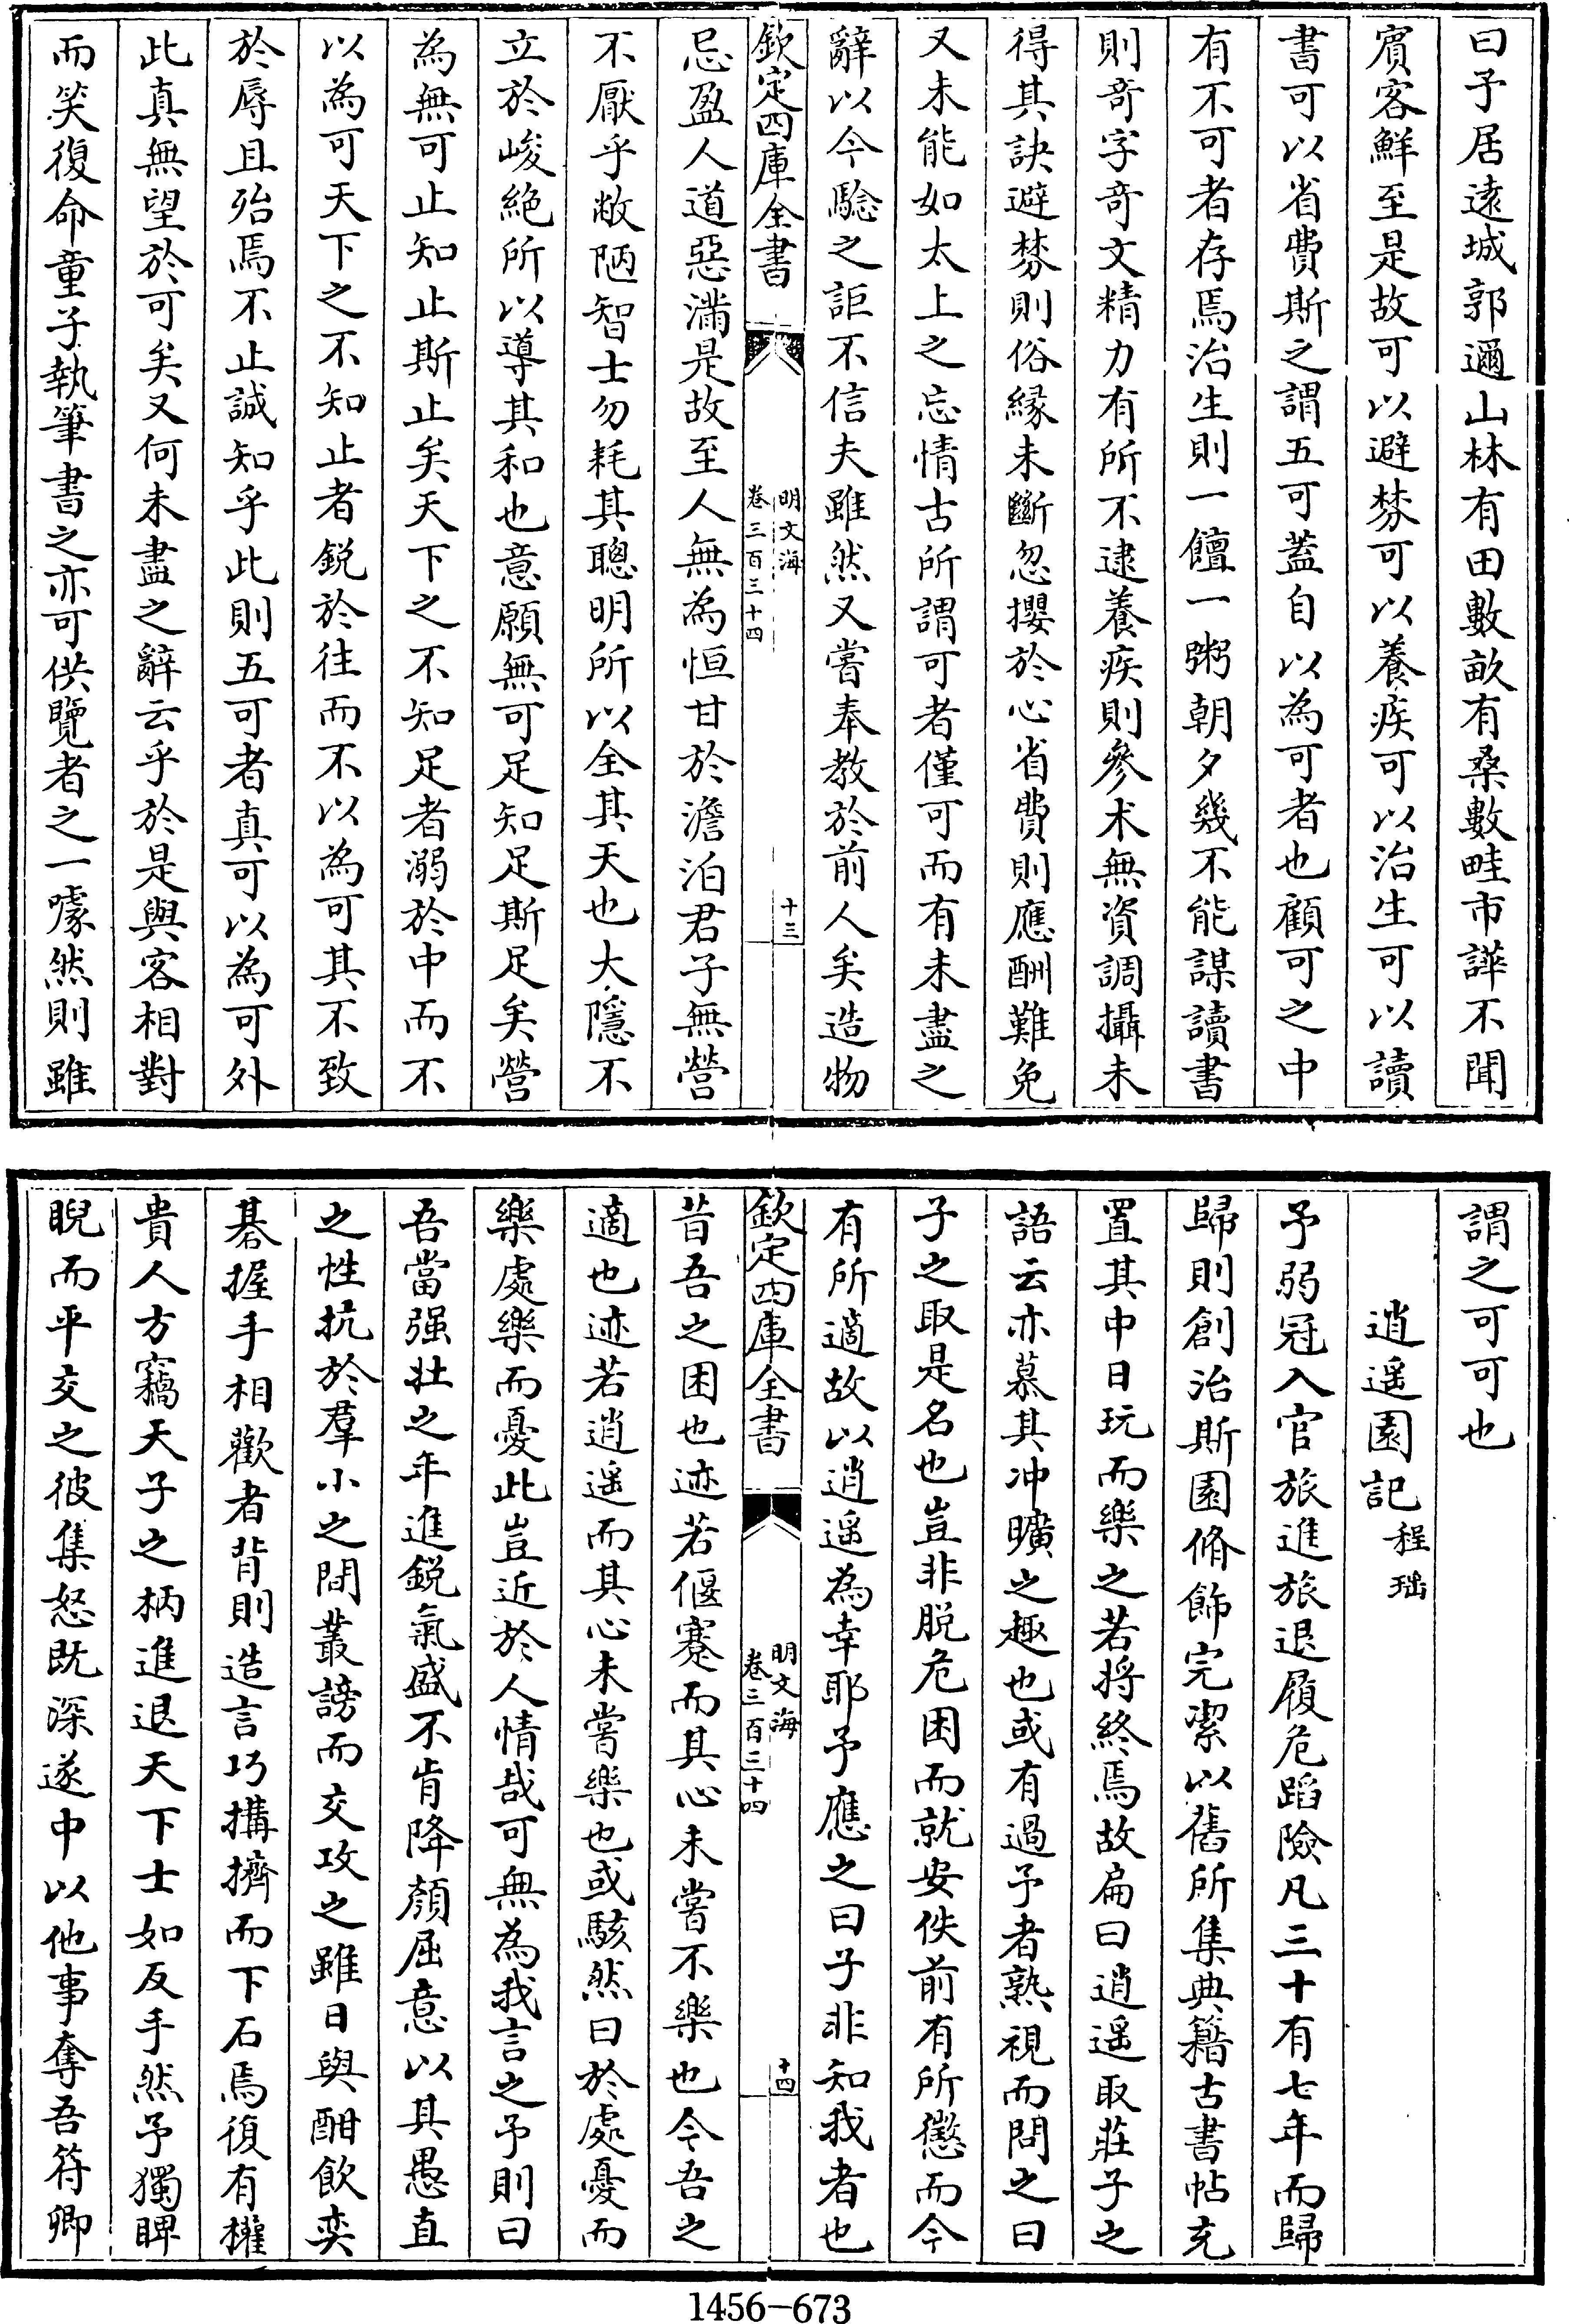 曰予居遠城郭邇山林有田數畝有桑數畦市譁不聞
賓客鮮至是故可以避棼可以養疾可以治生可以讀
書可以省費斯之謂五可蓋自以為可者也顧可之中
有不可者存焉治生則一饘一粥朝夕幾不能謀讀書
則奇字奇文精力有所不逮養疾則參术無資調攝未
得其訣避棼則俗緣未斷忽攖於心省費則應酬難免
又未能如太上之忘情古所謂可者僅可而有未盡之
辭以今騐之詎不信夫雖然又嘗奉教於前人矣造物
欽定四庫全書
明文海
卷三百三十四
十三
忌盈人道惡滿是故至人無為恒甘於澹泊君子無營
不厭乎敝陋智士勿耗其聰明所以全其天也大隱不
立於峻絶所以導其和也意願無可足知足斯足矣營
為無可止知止斯止矣天下之不知足者溺於中而不
以為可天下之不知止者銳於往而不以為可其不致
於辱且殆焉不止誠知乎此則五可者真可以為可外
此真無望於可矣又何未盡之辭云乎於是與客相對
而笑復命童子執筆書之亦可供覽者之一噱然則雖
謂之可可也
逍遥園記程珤
予弱冠入官旅進旅退履危蹈險凡三十有七年而歸
歸則創治斯園脩飾完潔以舊所集典籍古書帖充
置其中日玩而樂之若將終焉故扁曰逍遥取莊子之
語云亦慕其冲曠之趣也或有過予者熟視而問之曰
子之取是名也豈非脱危困而就安佚前有所懲而今
有所適故以逍遥為幸耶予應之曰子非知我者也
欽定四庫全書
明文海
卷三百三十四
十四
昔吾之困也迹若偃蹇而其心未嘗不樂也今吾之
適也迹若逍遥而其心未嘗樂也或駭然曰於處憂而
樂處樂而憂此豈近於人情哉可無為我言之予則曰
吾當强壯之年進銳氣盛不肯降顏屈意以其愚直
之性抗於羣小之間叢謗而交攻之雖日與酣飲奕
碁握手相歡者背則造言巧搆擠而下石焉復有權
貴人方竊天子之柄進退天下士如反手然予獨睥
睨而平交之彼集怒既深遂中以他事奪吾符卿
1456-673